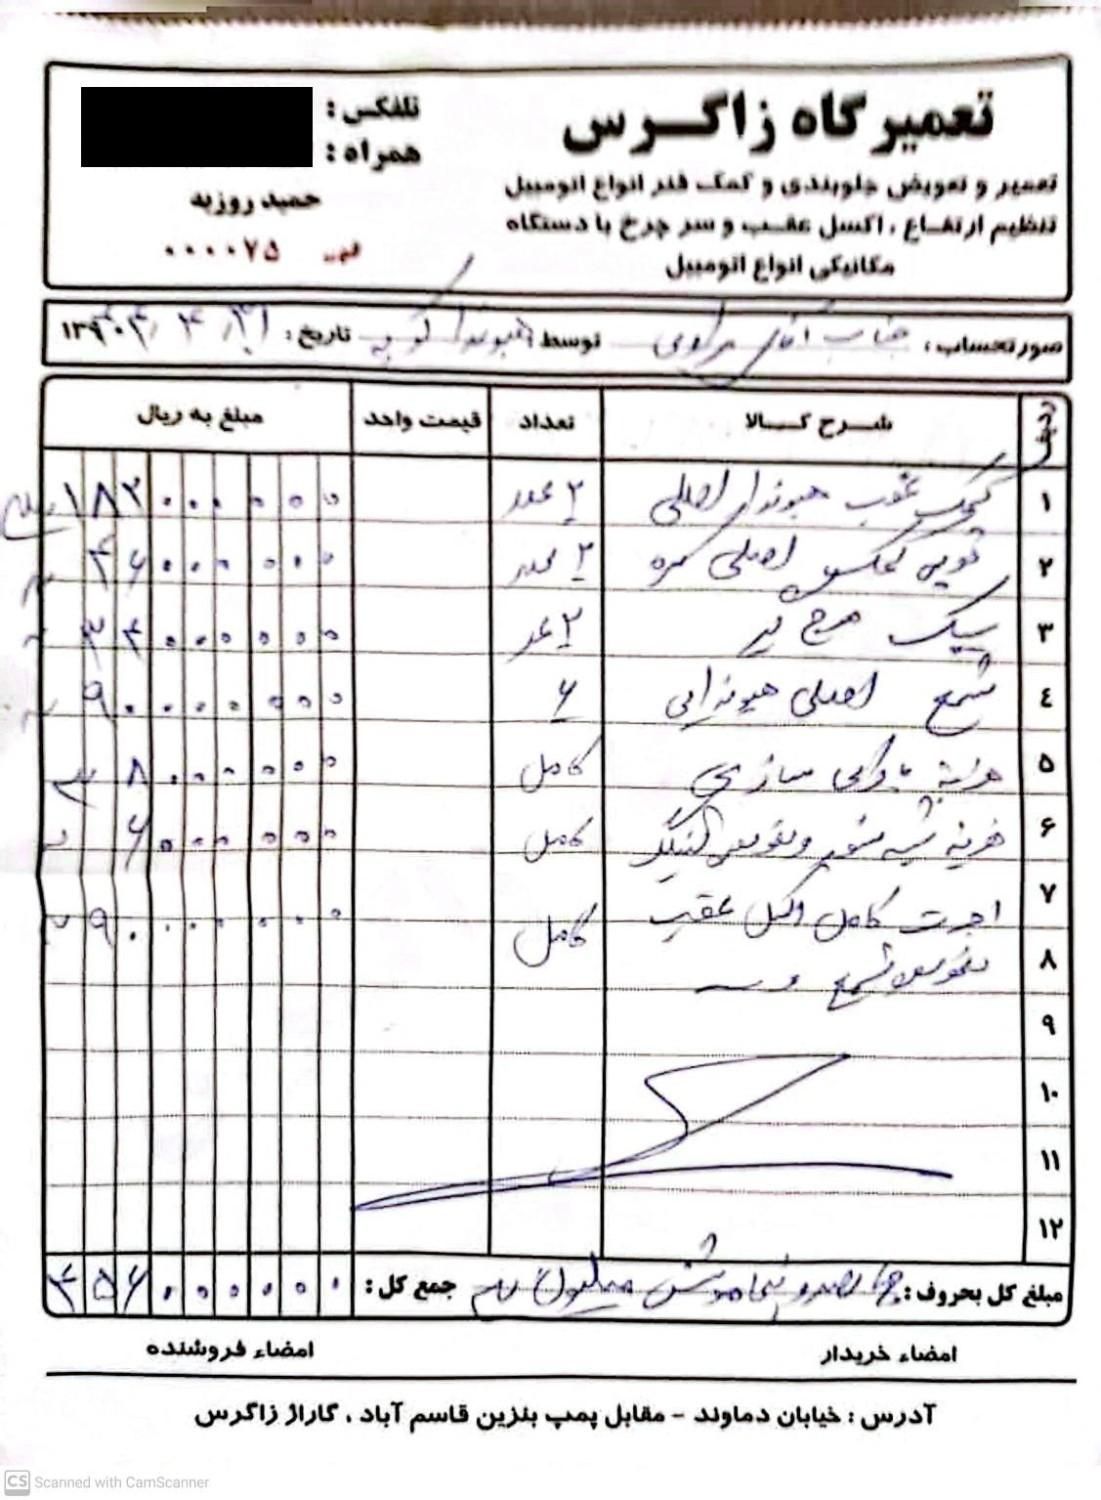 تعمیرگاه زاگرس
تعمیر و تعویض جلوبندی و کمک فنر انواع اتومبیل
تنظیم ارتفاع ، اکسل عقب و سر چرخ با دستگاه
مکانیکی انواع اتومبیل
تلفکس :
همراه :
حمید روزبه
۰۰۰۰۷۵
صورتحساب : جناب آقای توسط هیوندا کوپه تاریخ :
ردیف شرح کالا تعداد قیمت واحد مبلغ به ریال
۱ کمک عقب هیوندا اصلی ۲ عدد ۱۸۲۰۰۰۰۰۰۰
۲ اصلی ۲ عدد ۴۶۰۰۰۰۰۰۰
۳ سیبک ۲ عدد ۳۴۰۰۰۰۰۰۰
۴ شمع اصلی هیوندایی ۶ ۹۰۰۰۰۰۰۰۰
۵ هزینه سازی کامل ۳۸۰۰۰۰۰۰۰
۶ هزینه کامل ۶۰۰۰۰۰۰۰
۷ اجرت کامل اکسل عقب کامل ۹۰۰۰۰۰۰۰
۸ تعویض شمع و
۹
۱۰
۱۱
۱۲
مبلغ کل بحروف : چهارصد و پنجاه و شش میلیون ریال جمع کل : ۴۵۶۰۰۰۰۰۰۰
امضاء خریدار امضاء فروشنده
آدرس : خیابان دماوند - مقابل پمپ بنزین قاسم آباد ، گاراژ زاگرس
CS Scanned with CamScanner